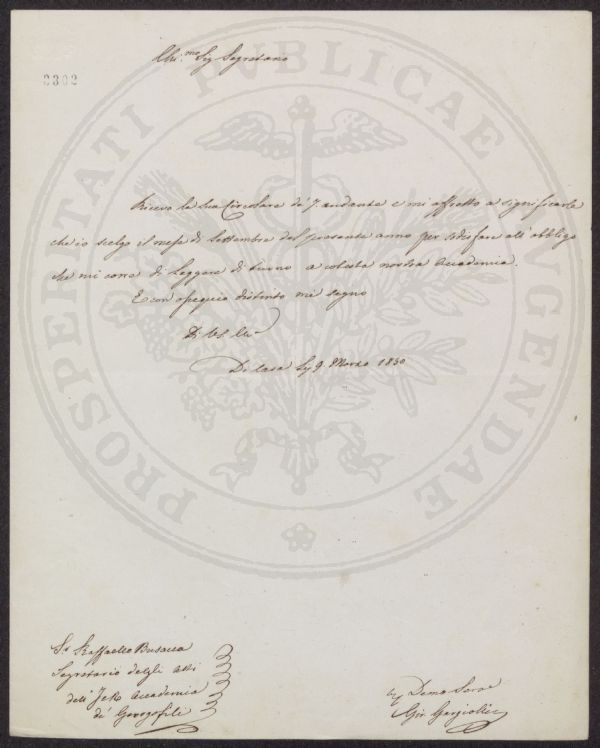 Chi.mo Sig Segretario
2302
PROSPERITATI PUBLICAE AUGENDAE
Ricevo la sua Circolare de' 7 andante e mi affretto a significarle
che io scelgo il mese di Settembre del presente anno per sodisfare all' obbligo
che mi corre di Leggere di turno a codesta nostra Accademia.
E con ossequio distinto mi segno
Di VS
Di Casa Ly 9 Marzo 1830
Sr Raffaello Busacca
Segretario degli Atti
dell' JeR Accademia
de' Georgofili
Devmo Serve
Gir Gargiolli